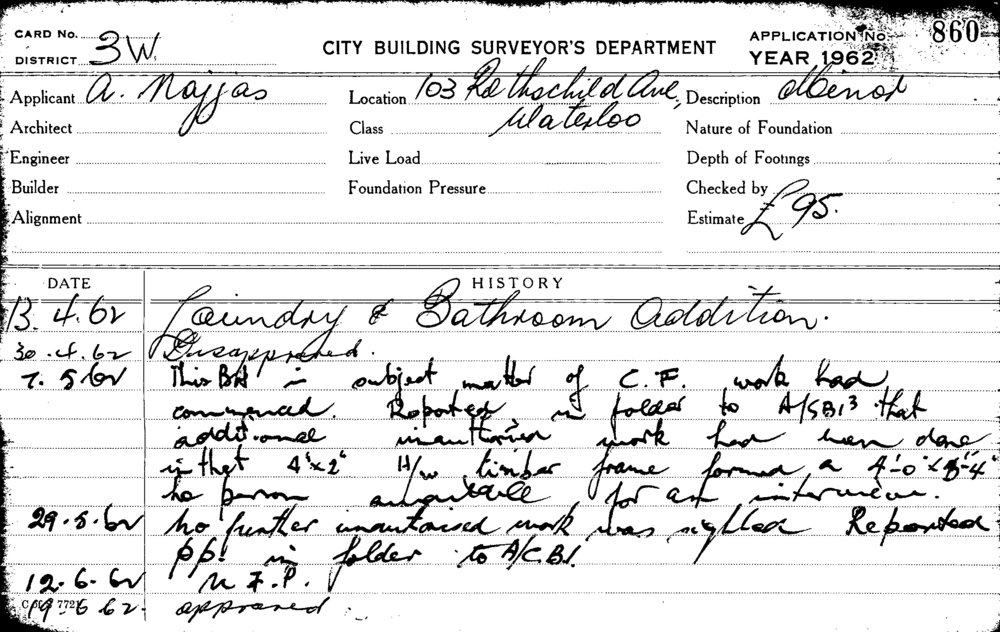 CARD No.
DISTRICT 3W.
CITY BUILDING SURVEYOR'S DEPARTMENT
APPLICATION No. 860
YEAR 1962
Applicant A. Najjas Location 103 Rothschild Ave, Description Minor
Waterloo
Architect Class Nature of Foundation
Engineer Live Load Depth of Footings
Builder Foundation Pressure Checked by
Alignment Estimate £95.
DATE HISTORY
13.4.62 Laundry & Bathroom addition.
30.4.62 Disapproved.
7.5.62 This BA is subject matter of C.F. work had
commenced. Reported in folder to A/SBI3 that
additional unauthorised work had been done
in that 4"x2" H/w timber frame formed a 4'-0" x
no person available for an interview.
29.5.62 No further unautorised work was sighted Reported
pp! in folder to A/C.B.I.
12.6.62 N.F.P.
19.6.62. approved.